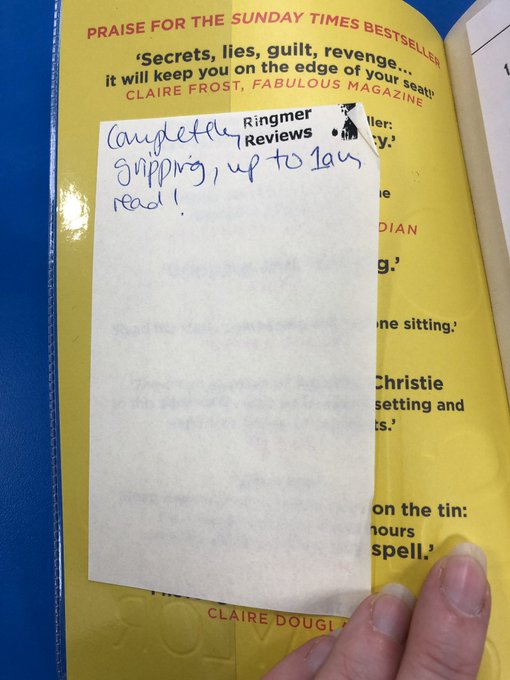 PRAISE FOR THE SUNDAY TIMES BESTSELLER
'Secrets, lies, guilt, revenge...
it will keep you on the edge of your seat!'
CLAIRE FROST, FABULOUS MAGAZINE
Ringmer
Reviews
Completely
gripping, up to 1am
read!
ller:
y.'
e
DIAN
g.'
one sitting.'
Christie
setting and
ts.'
on the tin:
hours
spell.'
CLAIRE DOUGL